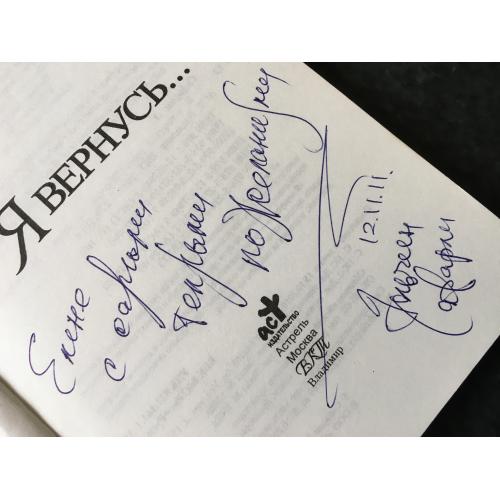 Я ВЕРНУСЬ...
Елене
с самыми
теплыми
пожеланиями
12.11.11.
Эльчин
Сафарли
аст
ИЗДАТЕЛЬСТВО
Астрель
Москва
ВКТ
Владимир